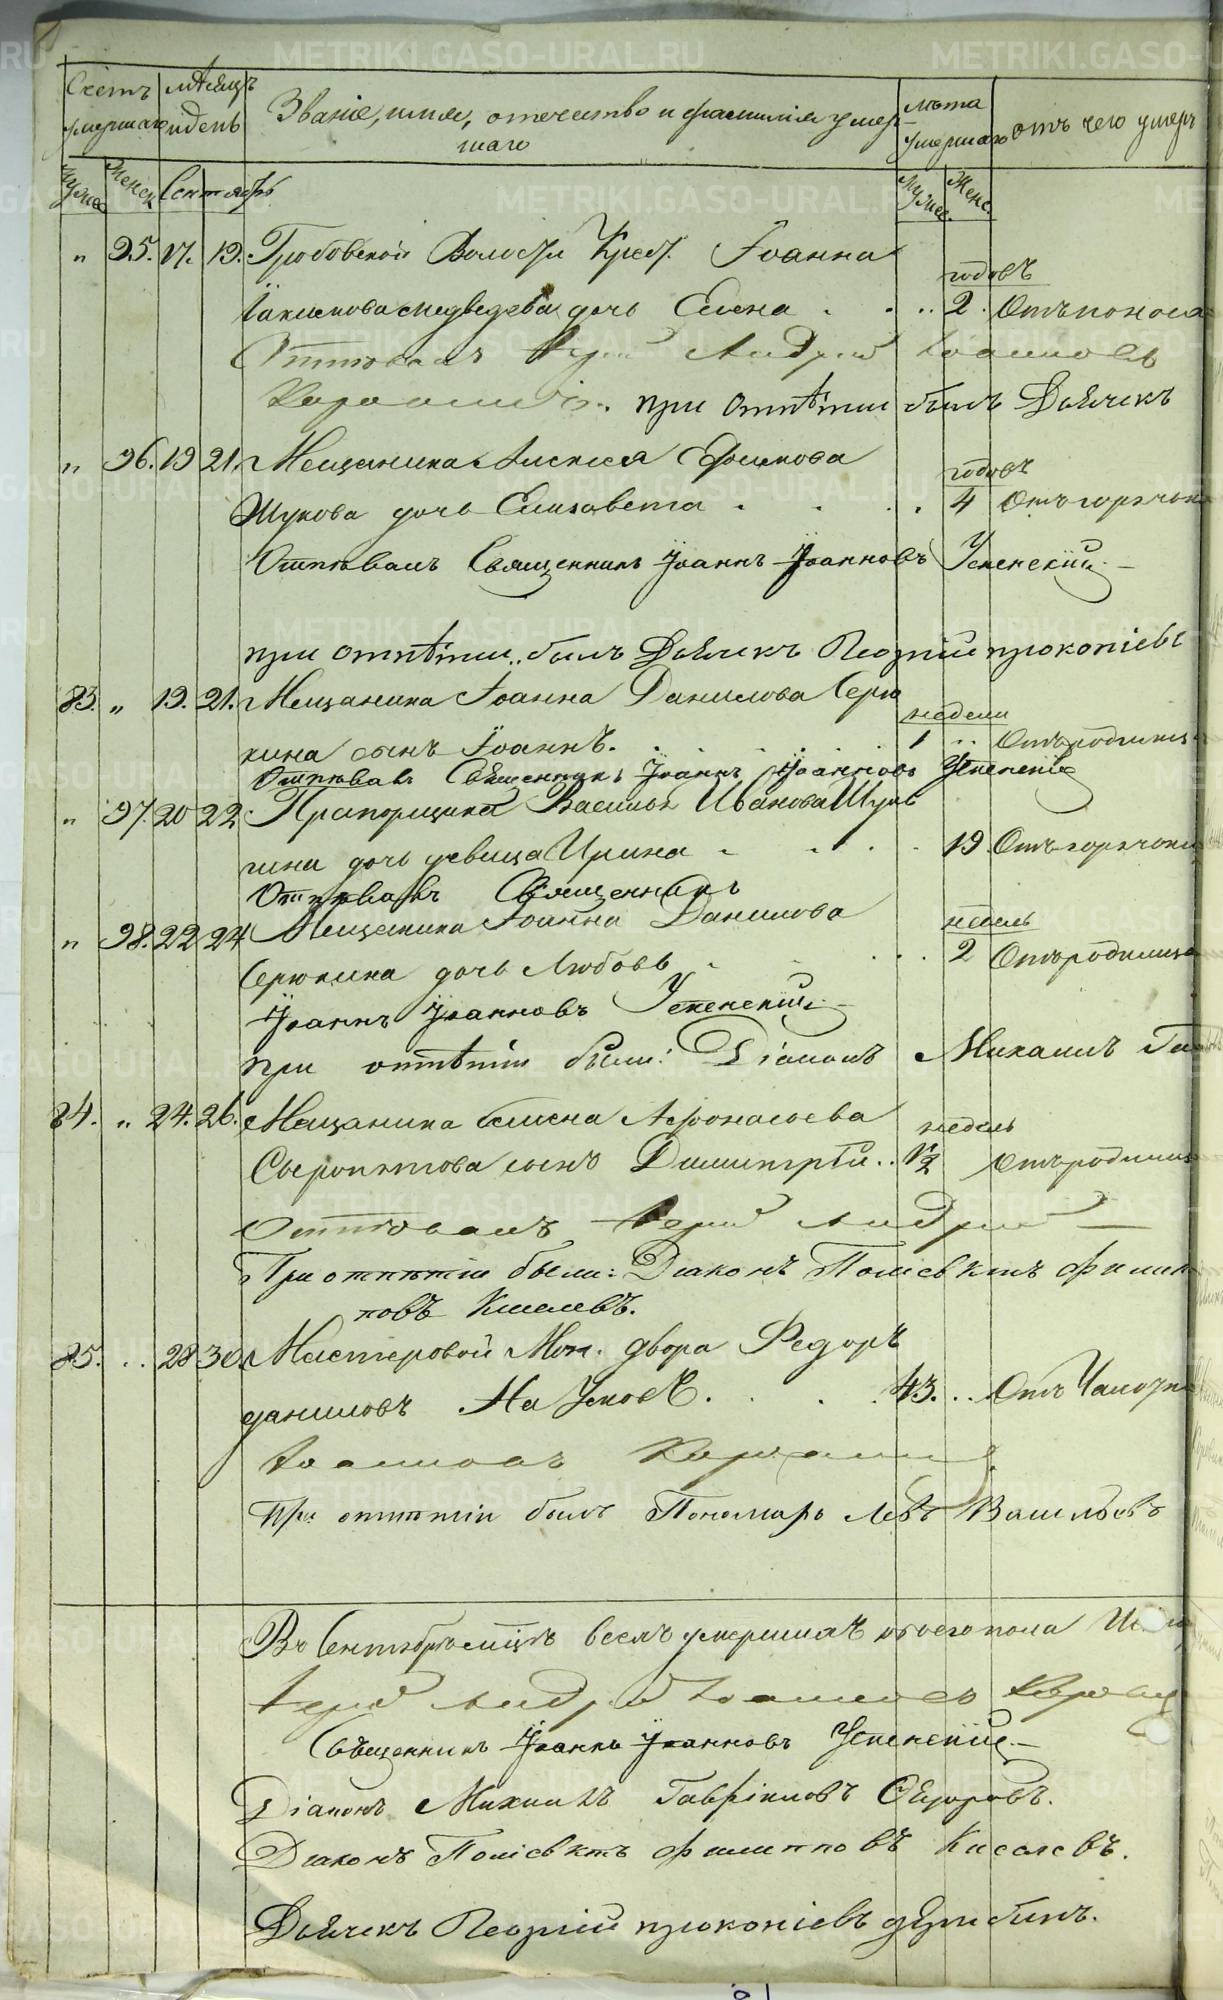 Счетъ умершихъ
мѣсяцъ и день
Званіе, имя, отечество и фамилія умер-
шаго
лѣта умершаго
отъ чего умеръ
Мужес. Женск. Сентябрь
Мужес. Женс.
" 95. 17. 19. Гробовской Волости Крест. Іоанна
годовъ
Іакимова Медведева дочь Елена . . . . 2. Отъ поноса
Отпѣвалъ Іерей Андрей Іоанновъ
при отпѣтіи былъ Дьячекъ
" 96. 19 21. Мещанина Алексея Ефимова
годовъ
Жукова дочь Елизавета . . . . 4 Отъ горячк
Отпѣвалъ Священникъ Іоаннъ Іоанновъ Успенскій.
при отпѣтіи былъ Дьячекъ Георгій прокопіевъ
83. " 19. 21. Мещанина Іоанна Данилова Серю
недели
кина сынъ Іоаннъ. . . . . 1 .. Отъ родимца
Отпѣвалъ Священникъ Іоаннъ Іоанновъ Успенскій
" 97. 20 22. Прапорщика Василья Иванова Шуль
гина дочь девица Ирина . . . . 19 Отъ горячки
Отпѣвалъ Священникъ
" 98. 22 24 Мещанина Іоанна Данилова
недель
Серюкина дочь Любовь . . . . 2 Отъ родимца
Іоаннъ Іоанновъ Успенскій
при отпѣтіи были: Діаконъ Михаилъ Га
84. " 24. 26. Мещанина Афонасьева
недель
сынъ Димитрій .. 1/2 Отъ родимца
Отпѣвалъ Іерей Андрей
При отпѣтіи были: Діаконъ Поліевктъ Филип
повъ Киселевъ.
85. .. 28 30. Мастеровой Мон. двора Федоръ
даниловъ Наумовъ. . . . 43. .. Отъ Чахотк
Іоанновъ
При отпѣтіи былъ Пономарь Левъ Васильевъ
Въ Сентябрѣ мцѣ всехъ умершихъ обоего пола
Іерей Андрей Іоанновъ
Священникъ Іоаннъ Іоанновъ Успенскій
Діаконъ Михаилъ Гавріиловъ Ѳедоровъ.
Діаконъ Поліевктъ Филипповъ Киселевъ.
Дьячекъ Георгій прокопіевъ дерябинъ.
METRIKI.GASO-URAL.RU